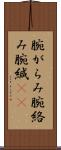 腕がらみ腕絡
み腕緘